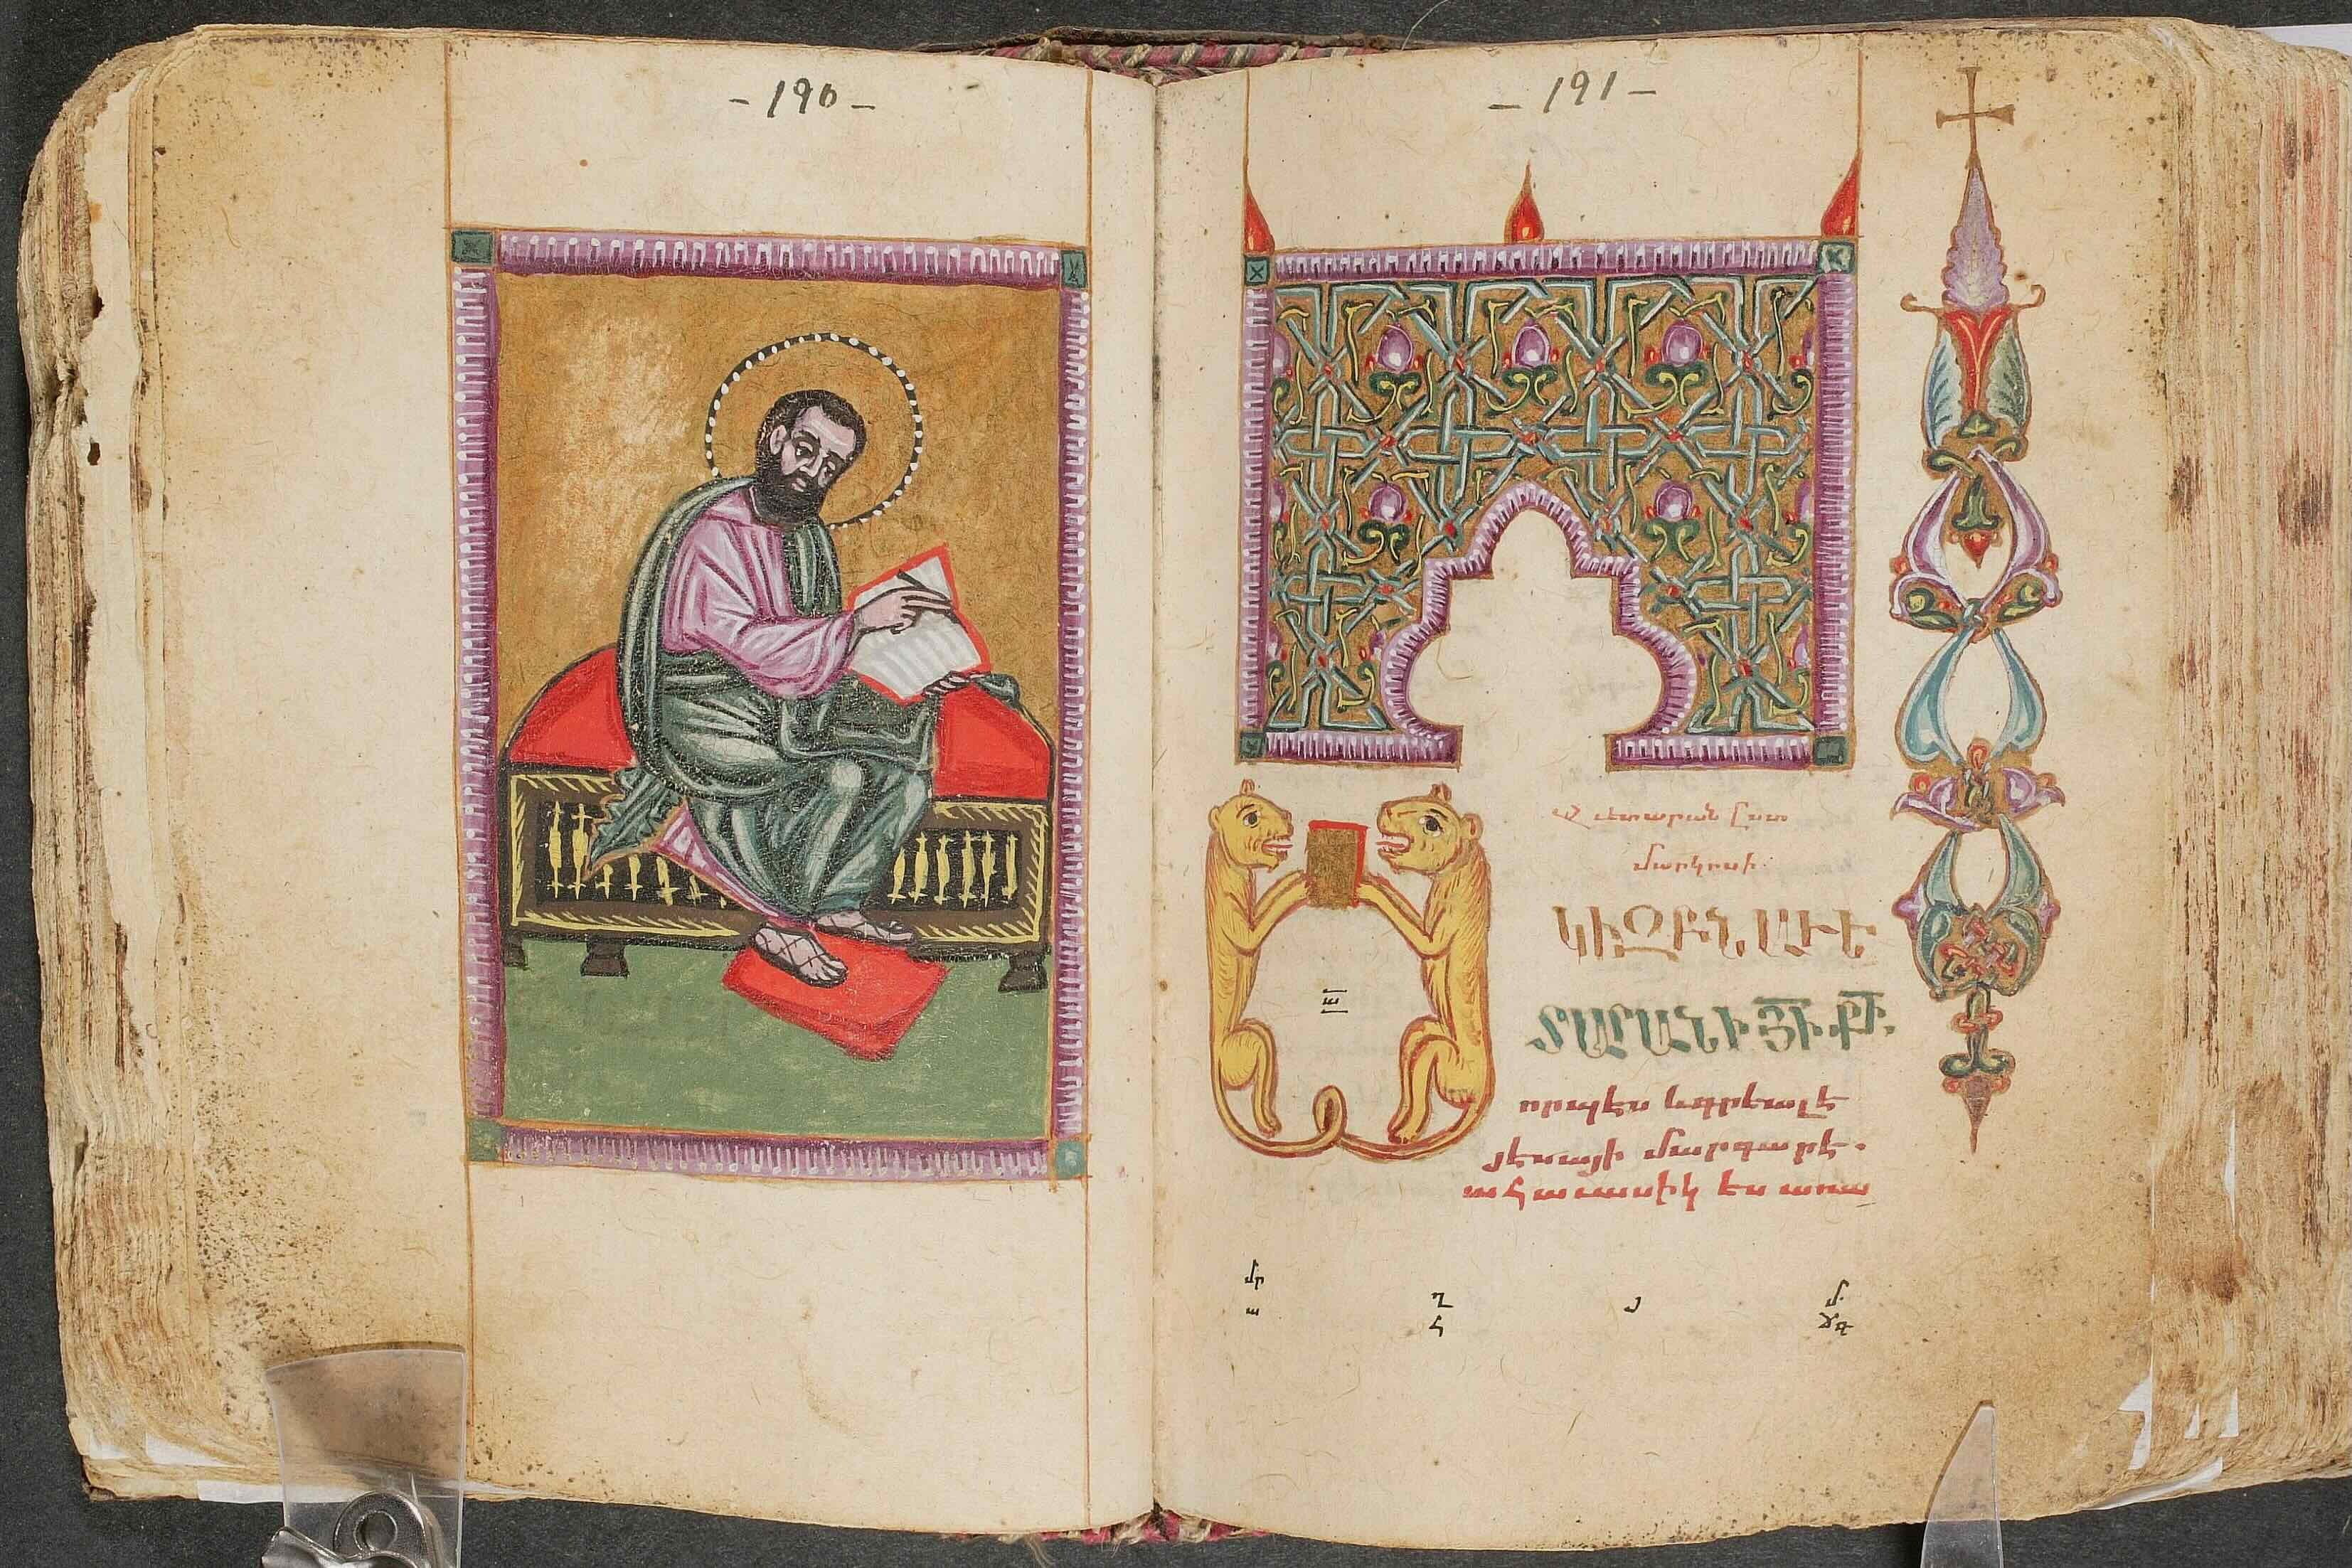 -190-
-191-
Աւետարան ըստ
մարկոսի
ԿԻԶԲՆ ԱՒԵ
ՏԱՐԱՆԻ ՅԻ ՔԻ.
որպէս և գրեալ է
յէսայի մարգարէ.
ահաւասիկ ես առա
ա
մր ղ յ մ
ա հ